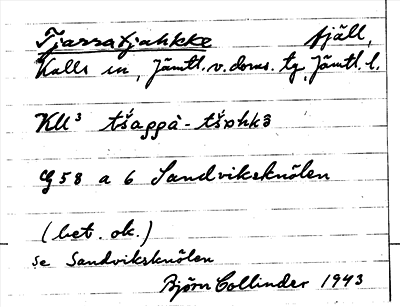 Tjarratjahkke fjäll,
Kalls sn, Jämtl. v. doms. tg, Jämtl. l.
KU³ tšaggà-tšɒhkɜ
G 58 a 6 Sandviksknölen
(bet. ok.)
se Sandviksknölen
Björn Collinder 1943